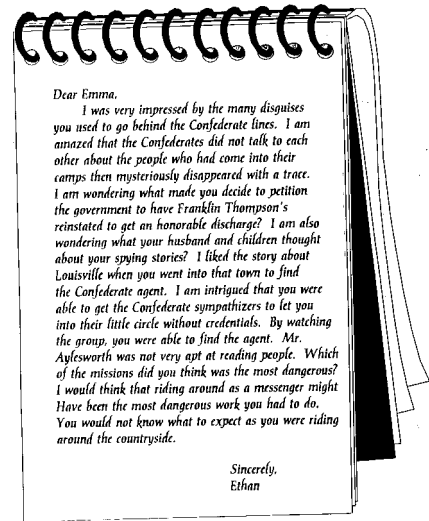 Dear Emma,
I was very impressed by the many disguises
you used to go behind the Confederate lines. I am
amazed that the Confederates did not talk to each
other about the people who had come into their
camps then mysteriously disappeared with a trace.
I am wondering what made you decide to petition
the government to have Franklin Thompson's
reinstated to get an honorable discharge? I am also
wondering what your husband and children thought
about your spying stories? I liked the story about
Louisville when you went into that town to find
the Confederate agent. I am intrigued that you were
able to get the Confederate sympathizers to let you
into their little circle without credentials. By watching
the group, you were able to find the agent. Mr.
Aylesworth was not very apt at reading people. Which
of the missions did you think was the most dangerous?
I would think that riding around as a messenger might
Have been the most dangerous work you had to do.
You would not know what to expect as you were riding
around the countryside.
Sincerely,
Ethan